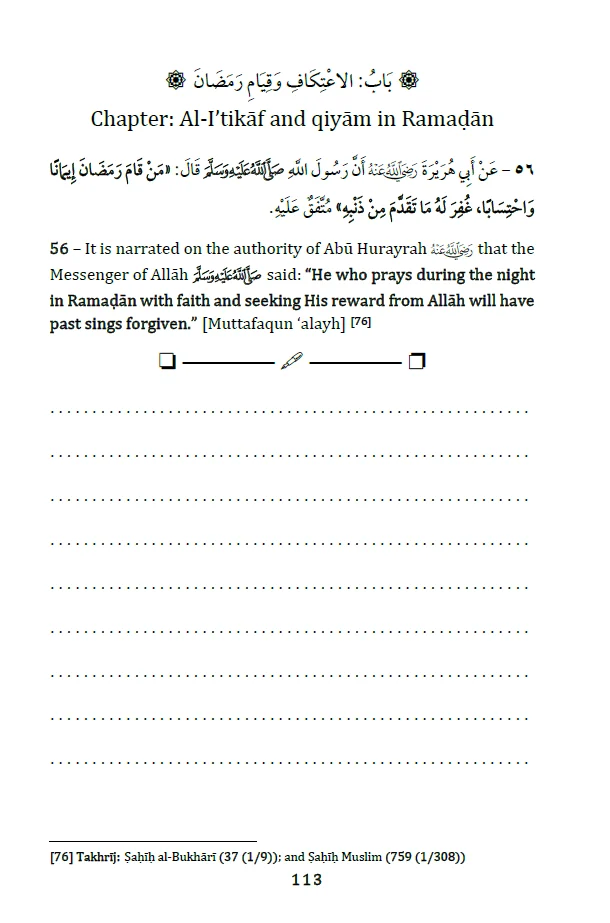 ۞ بَابُ: الاعْتِكَافِ وَقِيَامِ رَمَضَانَ ۞
Chapter: Al-I’tikāf and qiyām in Ramaḍān
٥٦ – عَنْ أَبِي هُرَيْرَةَ رَضِيَ اللَّهُ عَنْهُ أَنَّ رَسُولَ اللَّهِ صَلَّى اللَّهُ عَلَيْهِ وَسَلَّمَ قَالَ: «مَنْ قَامَ رَمَضَانَ إِيمَانًا
وَاحْتِسَابًا، غُفِرَ لَهُ مَا تَقَدَّمَ مِنْ ذَنْبِهِ» مُتَّفَقٌ عَلَيْهِ.
56 – It is narrated on the authority of Abū Hurayrah رَضِيَ اللَّهُ عَنْهُ that the
Messenger of Allāh صَلَّى اللَّهُ عَلَيْهِ وَسَلَّمَ said: “He who prays during the night
in Ramaḍān with faith and seeking His reward from Allāh will have
past sings forgiven.” [Muttafaqun ‘alayh] [76]
[76] Takhrīj: Ṣaḥīḥ al-Bukhārī (37 (1/9)); and Ṣaḥīḥ Muslim (759 (1/308))
113